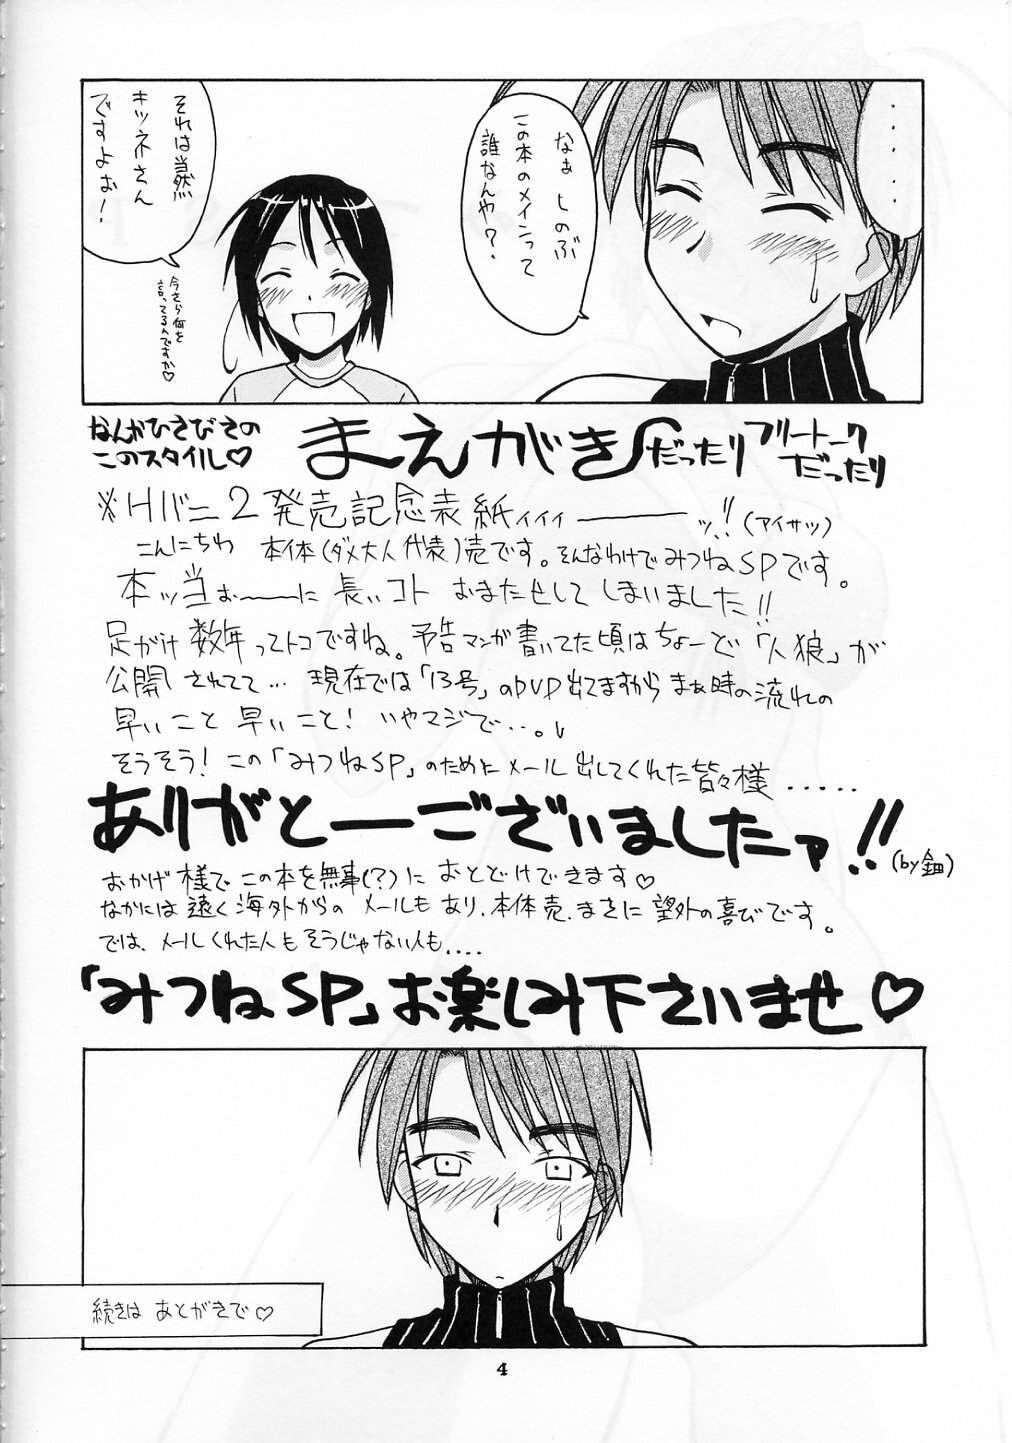 ‥‥‥‥
なぁ しのぶ
この本のメインって
誰なんや？
それは当然
キツネさん
ですよぉ！
今さら何を
言ってるんですか♡
なんかひさびさの
このスタイル♡
まえがき
だったり
フリートーク
だったり
※Hバニ2発売記念表紙ィィィ――――ッ!!(アイサツ)
こんにちわ 本体(ダメ大人代表)売です。そんなわけでみつねSPです。
本ッ当ぉ～～に 長いコト おまたせして しまいました!!
足がけ 数年ってトコですね。予告マンガ書いてた頃はちょーど「人狼」が
公開されてて… 現在では「13号」のDVD出てますから まぁ時の流れの
早いこと 早いこと！ いやマジで…。
そうそう！この「みつねSP」のためにメール出してくれた皆々様 ‥‥‥
ありがとーございましたァ!!
(by 鈿)
おかげ様で この本を無事(?)に おとどけできます♡
なかには遠く海外からの メールもあり、本体売、まさに望外の喜びです。
では、メールくれた人もそうじゃない人も‥‥
「みつねSP」お楽しみ下さいませ♡
続きは あとがきで♡
4